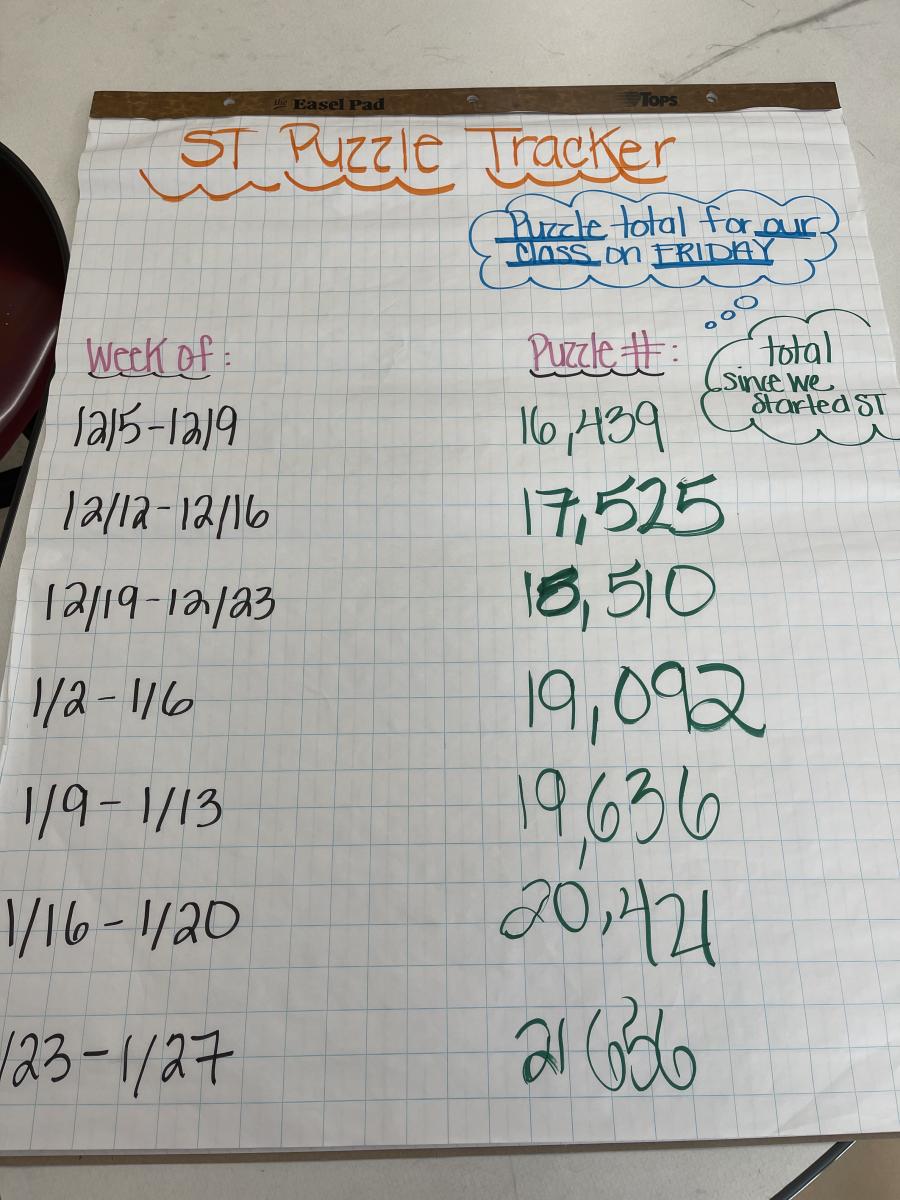 the Easel Pad TOPS
ST Puzzle Tracker
Puzzle total for our
class on FRIDAY
Week of: Puzzle #:
total
since we
started ST
12/5-12/9 16,439
12/12-12/16 17,525
12/19-12/23 18,510
1/2-1/6 19,092
1/9-1/13 19,636
1/16-1/20 20,421
/23-1/27 21 656